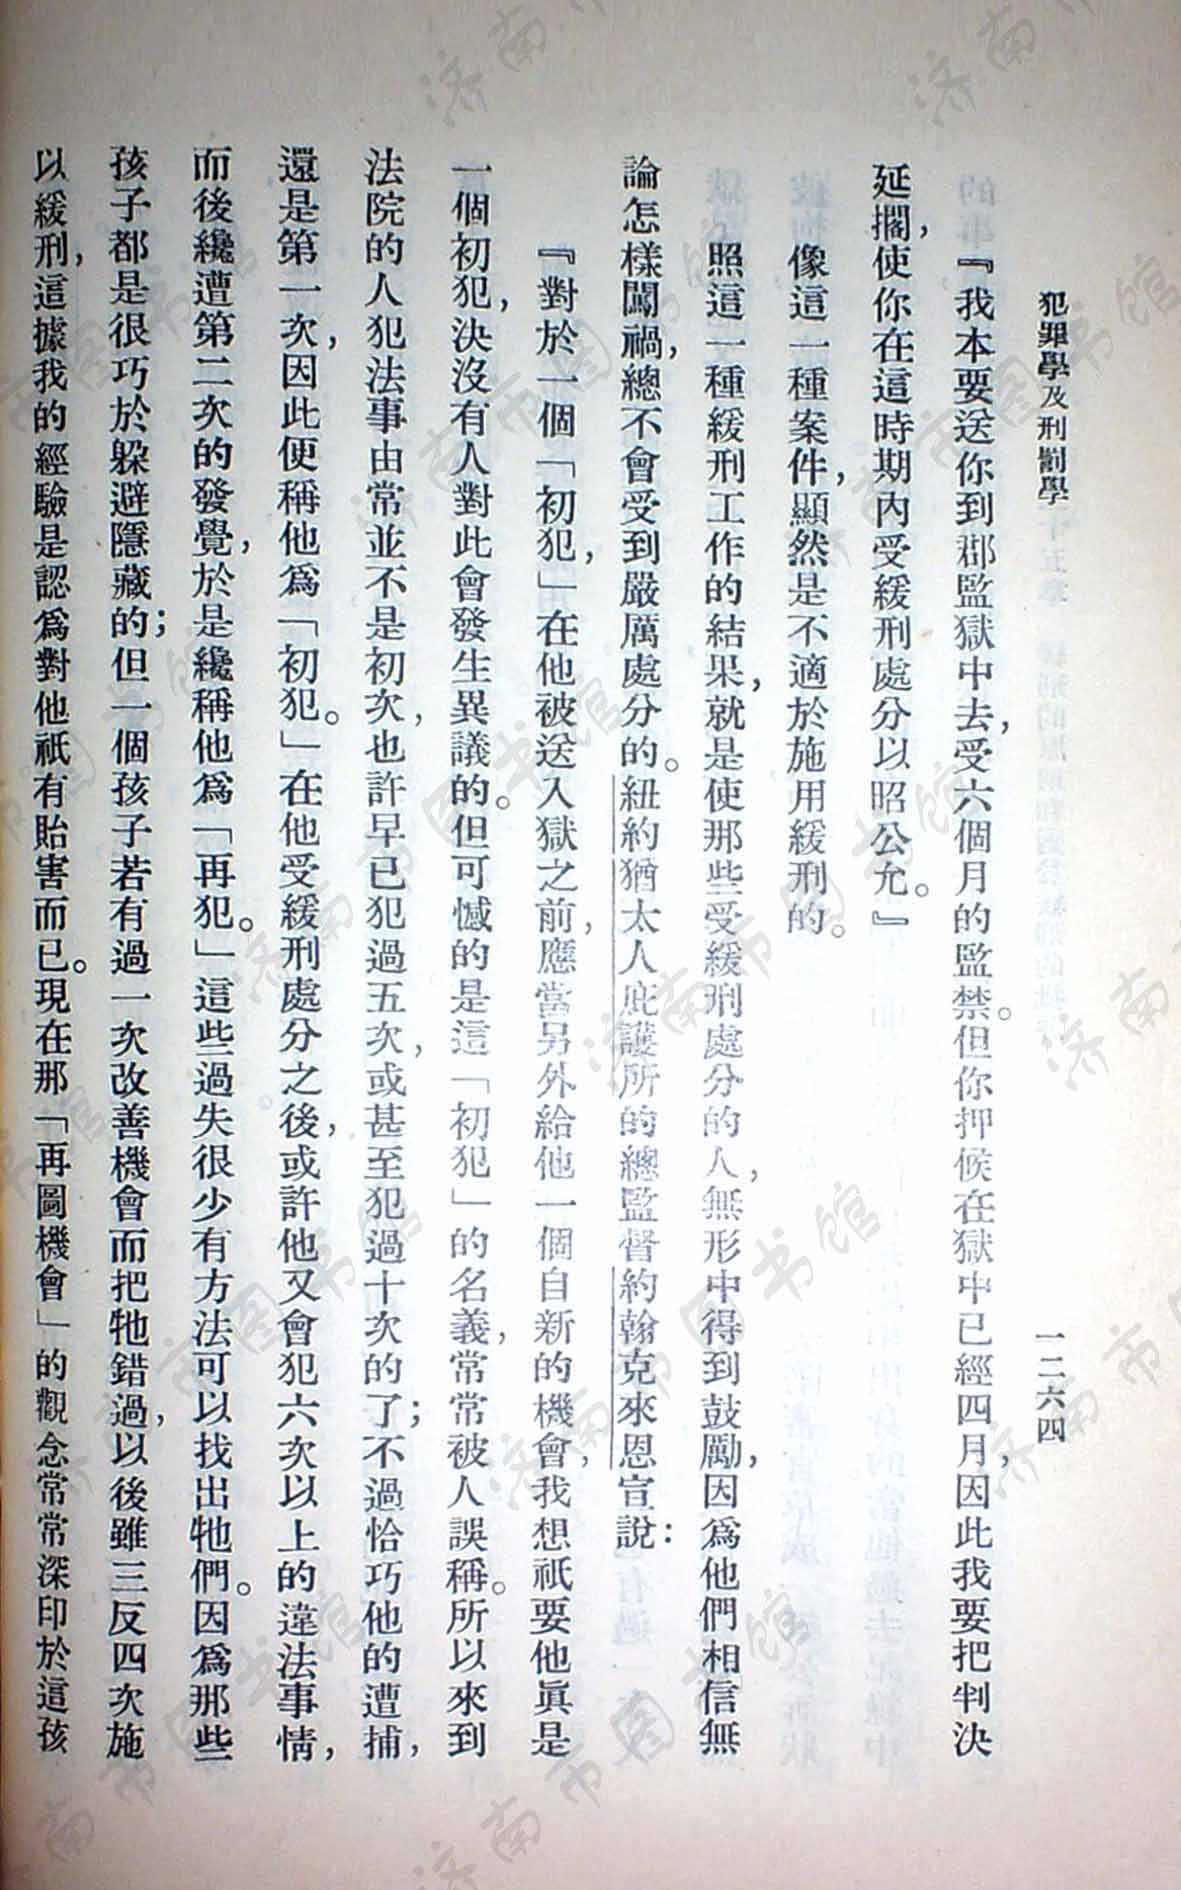 犯罪學及刑罰學
一二六四
『我本要送你到郡監獄中去，受六個月的監禁。但你押候在獄中已經四月，因此我要把判決
延擱，使你在這時期內受緩刑處分以昭公允。』
像這一種案件，顯然是不適於施用緩刑的。
照這一種緩刑工作的結果，就是使那些受緩刑處分的人，無形中得到鼓勵，因爲他們相信無
論怎樣闖禍，總不會受到嚴厲處分的。紐約猶太人庇護所的總監督約翰克來恩宣說：
『對於一個「初犯，」在他被送入獄之前，應當另外給他一個自新的機會，我想祇要他眞是
一個初犯，決沒有人對此會發生異議的。但可憾的是這「初犯」的名義，常常被人誤稱。所以來到
法院的人犯法事由常並不是初次，也許早已犯過五次，或甚至犯過十次的了；不過恰巧他的遭捕，
還是第一次，因此便稱他爲「初犯。」在他受緩刑處分之後，或許他又會犯六次以上的違法事情，
而後纔遭第二次的發覺，於是纔稱他爲「再犯。」這些過失很少有方法可以找出牠們。因爲那些
孩子都是很巧於躲避隱藏的；但一個孩子若有過一次改善機會而把牠錯過，以後雖三反四次施
以緩刑，這據我的經驗是認爲對他祇有貽害而已。現在那「再圖機會」的觀念常常深印於這孩